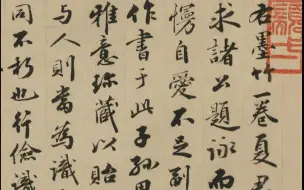 右墨竹一卷夏
求諸公題詠而
慢自愛不足副
作書于此子孫
雅意珎藏以貽
与人則當為識
同不朽也行儉識